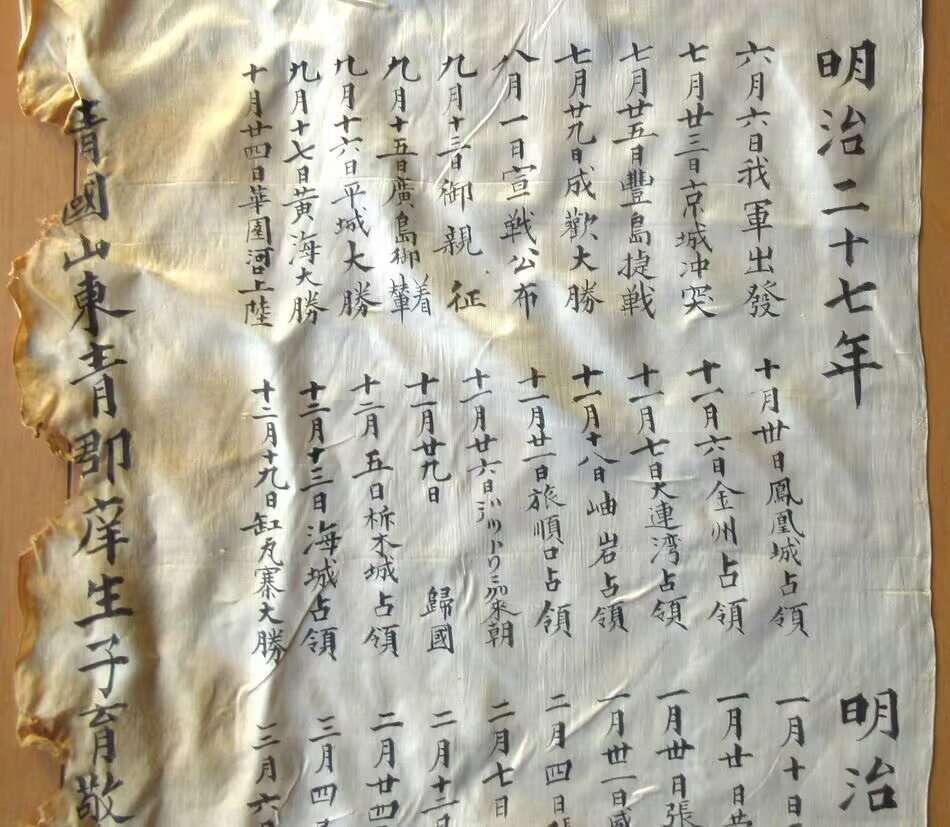 明治二十七年
六月六日我軍出發
七月廿三日京城冲突
七月廿五日豐島捷戦
七月廿九日成歡大勝
八月一日宣戦公布
九月十三日御親征
九月十五日廣島御着輦
九月十六日平城大勝
九月十七日黄海大勝
十月廿四日華園河口上陸
十月卅日鳳凰城占領
十一月六日金州占領
十一月七日大連湾占領
十一月十八日岫岩占領
十一月廿一日旅順口占領
十一月廿六日 來朝
十一月廿九日 歸國
十二月五日析木城占領
十二月十三日海城占領
十二月十九日缸瓦寨大勝
明治
一月十日
一月廿日
一月卅日張
一月卅一日威
二月四日
二月七日
二月十二
二月廿四
三月四
三月六日
青國山東青郡庠生子育敬